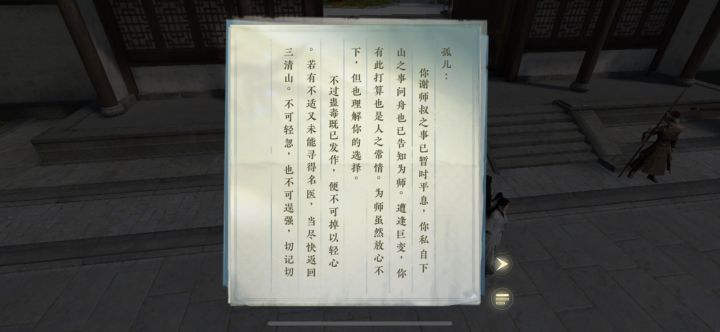 孤儿：
你谢师叔之事已暂时平息，你私自下
山之事问舟也已告知为师。遭逢巨变，你
有此打算也是人之常情。为师虽然放心不
下，但也理解你的选择。
不过蛊毒既已发作，便不可掉以轻心
。若有不适又未能寻得名医，当尽快返回
三清山。不可轻忽，也不可逞强，切记切